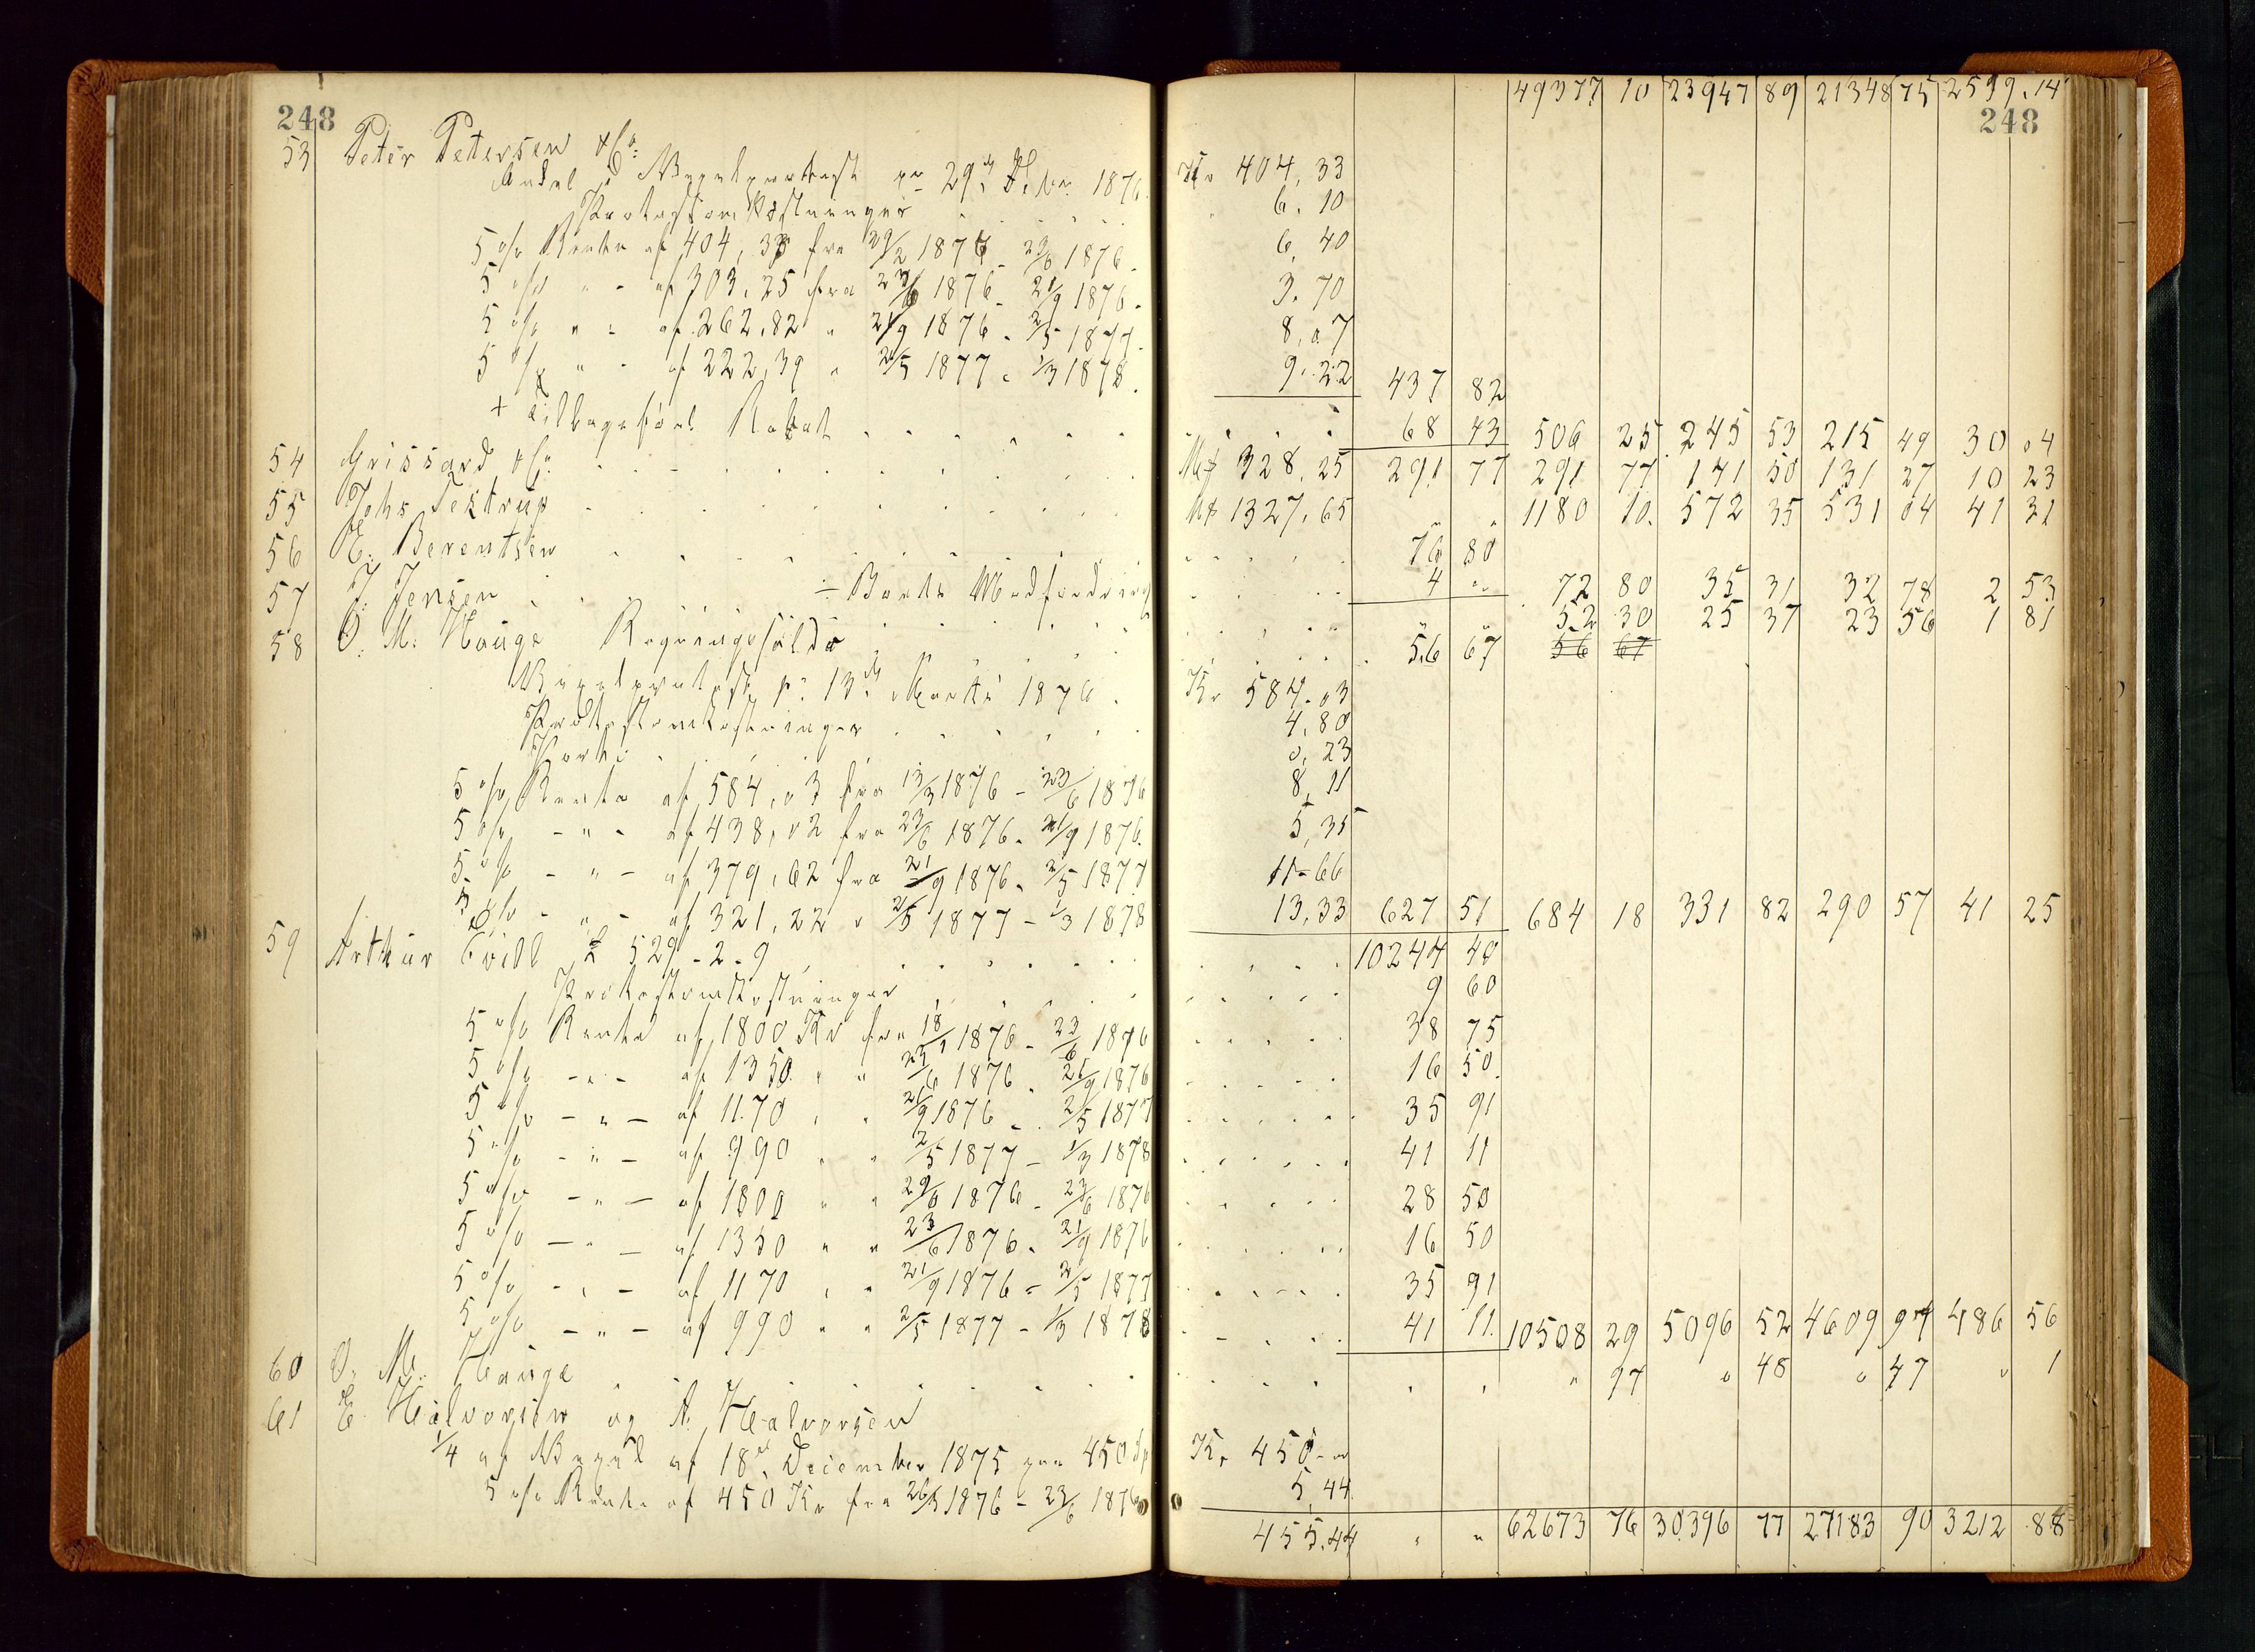 49377 10 23947 89 21348 75 2599.14
248 248
53 Peter Petersen & Co:
Andel i Vexelprotest pr 29de Febr. 1876. Kr 404,33
Protestomkostninger 6.10
5 o/o Rente af 404,33 fra 29/2 1876 - 23/6 1876. 6,40
5 o/o " - af 303,25 fra 23/6 1876 - 21/9 1876. 3.70
5 o/o " - af 262,82 " 21/9 1876 - 2/5 1877. 8,07
5 o/o " - af 222,39 " 2/5 1877 - 1/3 1878. 9.22 437 82
+ tilbageført Rabat 68 43 506 25 245 53 215 49 30 04
54 Grissard & Co. Mk 328.25 291 77 291 77 141 50 131 27 10 23
55 Johs Textrup Mk 1327.65 " " 1180 10. 572 35 531 04 41 31
56 E. Berentsen 76 80
÷ Bankens Modfordring 4 " 72 80 35 31 32 78 2 53
57 J. Jensen " " 52 30 25 37 23 56 1 81
58 O. M. Hauge Regningsfølde 56 67 56 67
Vexelprotest pr 13de Marts 1876. Kr 584.03
Protestomkostninger 4,80
Porto 0,23
5 o/o Rente af 584,03 fra 13/3 1876 - 23/6 1876 8,11
5 o/o - " - af 438,02 fra 23/6 1876 - 21/9 1876. 5,35
5 o/o - " - af 379,62 fra 21/9 1876 - 2/5 1877 11-66
5 o/o - " - af 321,22 " 2/5 1877 - 1/3 1878 13,33 627 51 684 18 331 82 290 57 41 25
59 Arthur £ 529-2-9 10244 40
Protestomkostninger 9 60
5 o/o Rente af 1800 Kr fra 18/1 1876 - 23/6 1876 38 75
5 o/o - " - af 1350 " " 23/6 1876 - 21/9 1876 16 50.
5 o/o - " - af 1170 " " 21/9 1876 - 2/5 1877 35 91
5 o/o - " - af 990 " " 2/5 1877 - 1/3 1878 41 11
5 o/o - " - af 1800 " " 1876 - 23/6 1876 28 50
5 o/o - " - af 1350 " " 23/6 1876 - 21/9 1876 16 50
5 o/o - " - af 1170 " " 21/9 1876 - 2/5 1877 35 91
5 o/o - " - af 990 " " 2/5 1877 - 1/3 1878 41 11. 10508 29 5096 52 4609 97 486 56
60 O. M. Hauge " 97 " 48 " 47 " 1
61 E. Halvorsen og A. Halvorsen
1/4 af Vexel af 18de December 1875 paa 450 Sp Kr. 450-00
5 o/o Rente af 450 Kr fra 1876 - 23/6 1876 5,44
455.44 " " 62673 76 30396 77 27183 90 3212 88